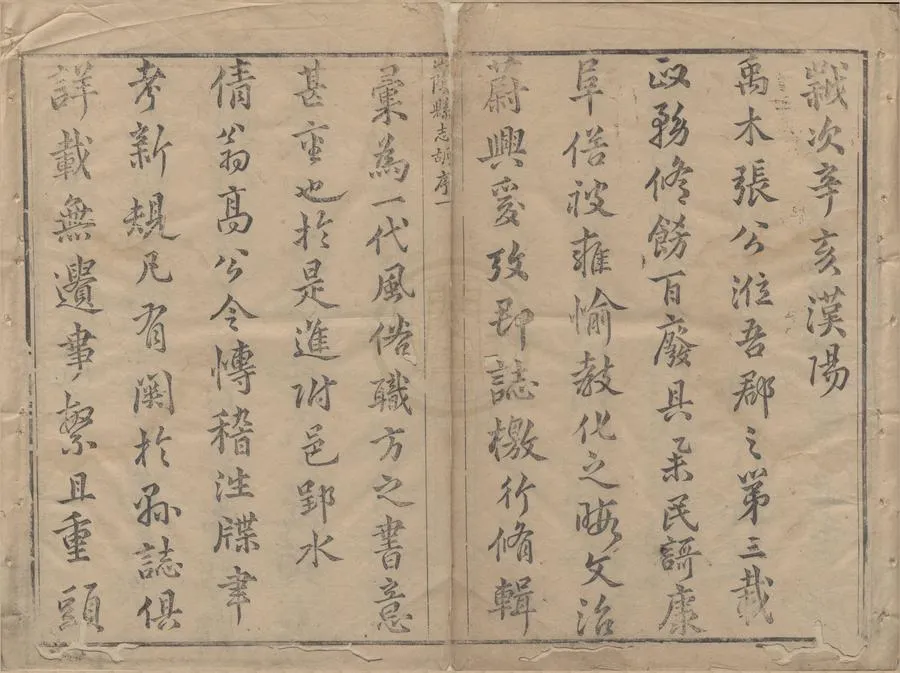 歲次辛亥漢陽
禹木張公涖吾郡之第三載
政務修飭百廢具舉民謌康
阜僚被雍愉教化之暇文治
蔚興爰攷郡誌檄行脩輯
縣志 序一
彙為一代風俗職方之書意
甚重也於是進附邑鄞水
倩翁高公令博稽往牒聿
考新規凡有關於縣誌俱
詳載無遺事繁且重頭